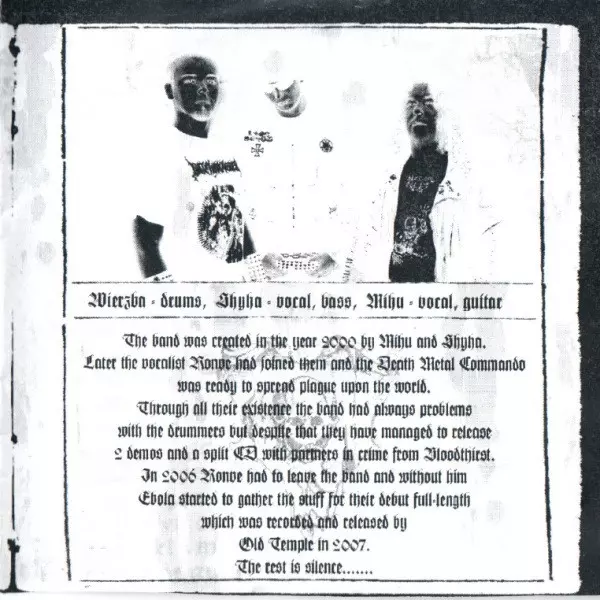 Wierzba - drums, Shyha - vocal, bass, Mihu - vocal, guitar
The band was created in the year 2000 by Mihu and Shyha.
Later the vocalist Ronve had joined them and the Death Metal Commando
was ready to spread plague upon the world.
Through all their existence the band had always problems
with the drummers but despite that they have managed to release
2 demos and a split CD with partners in crime from Bloodthirst.
In 2006 Ronve had to leave the band and without him
Ebola started to gather the stuff for their debut full-length
which was recorded and released by
Old Temple in 2007.
The rest is silence.......